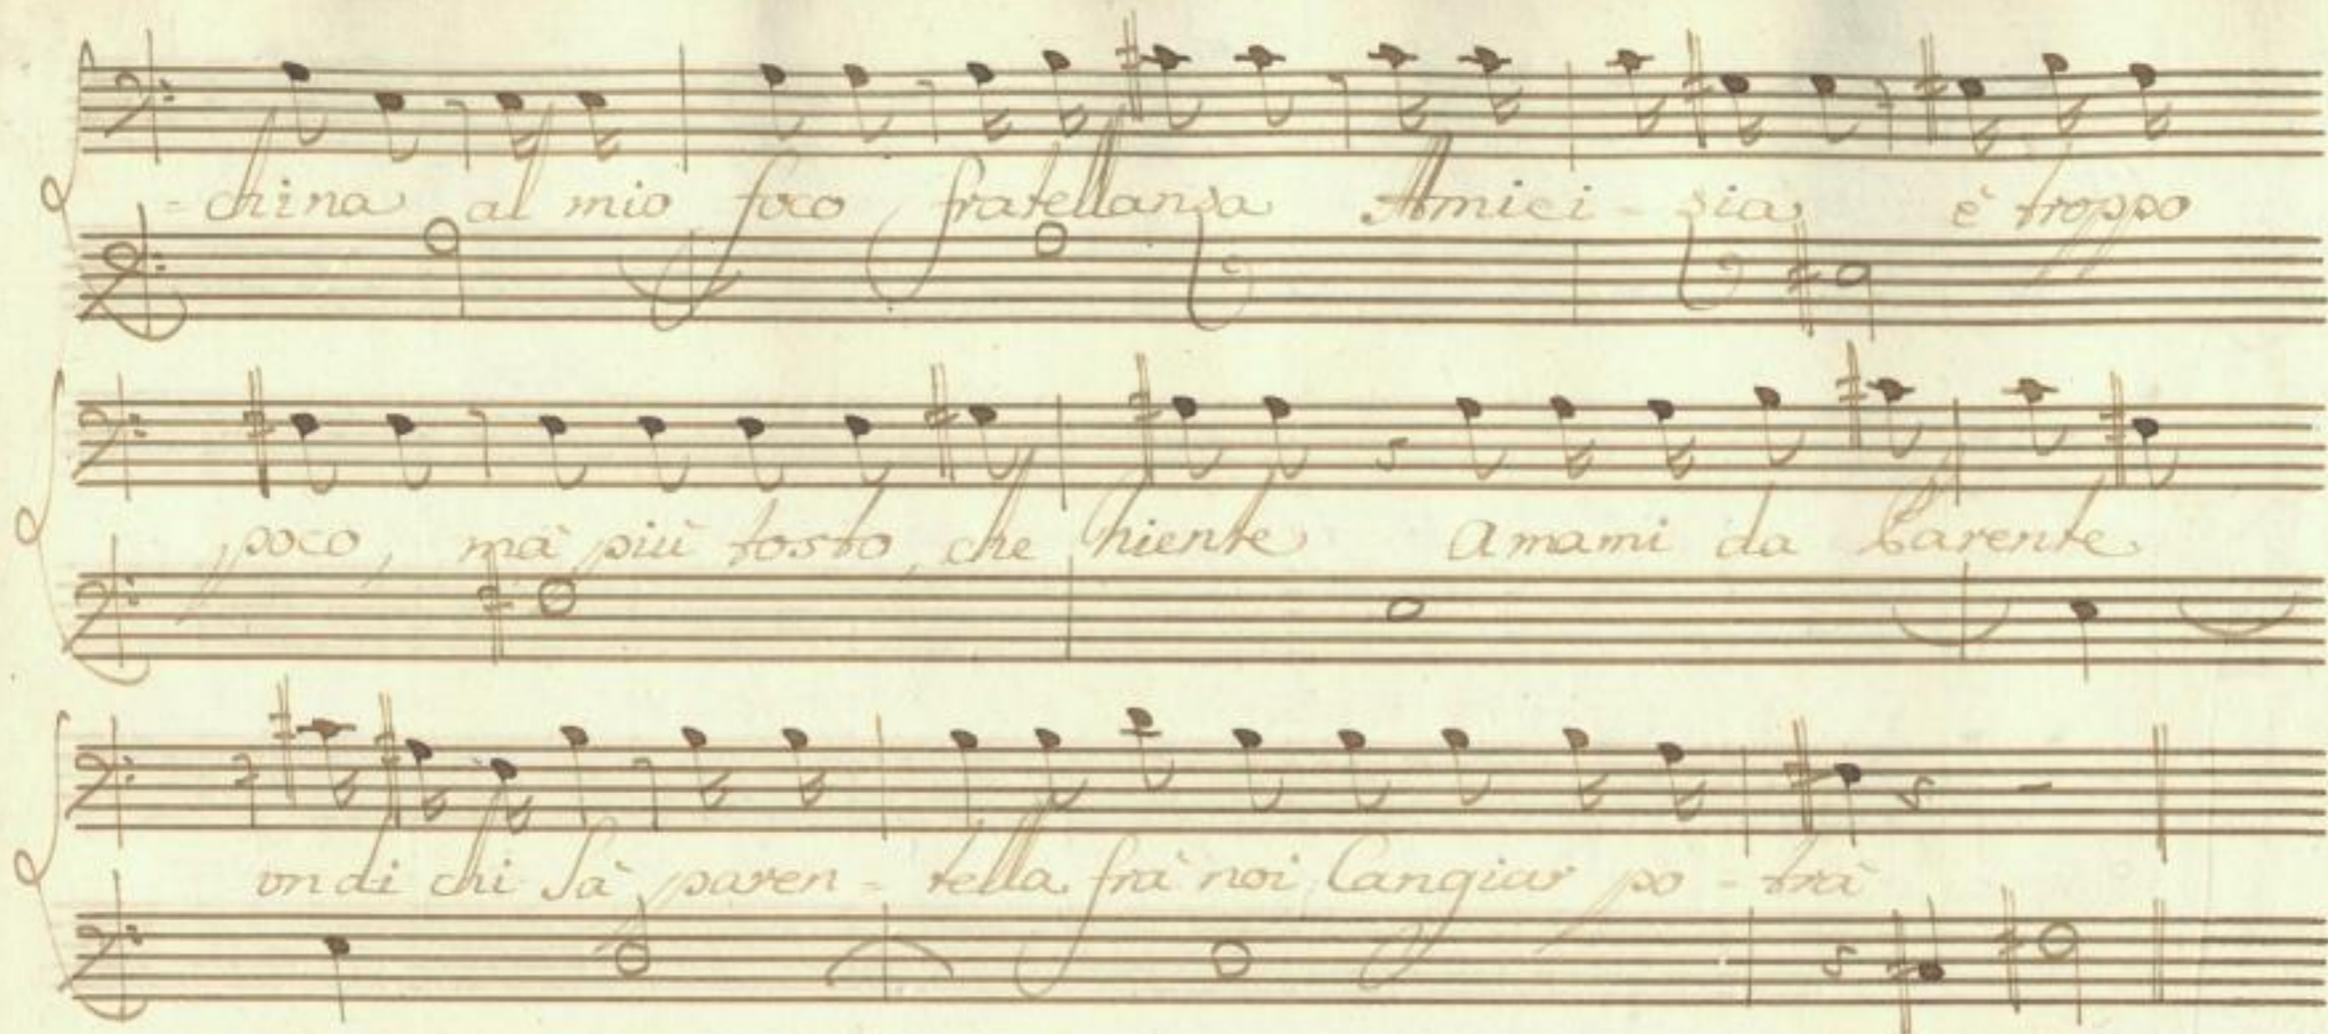 -china al mio foco fratellanza Amici-zia è troppo
poco, mà più tosto, che niente amami da Parente
un di chi sà paren-tella frà noi Cangiar po-trà